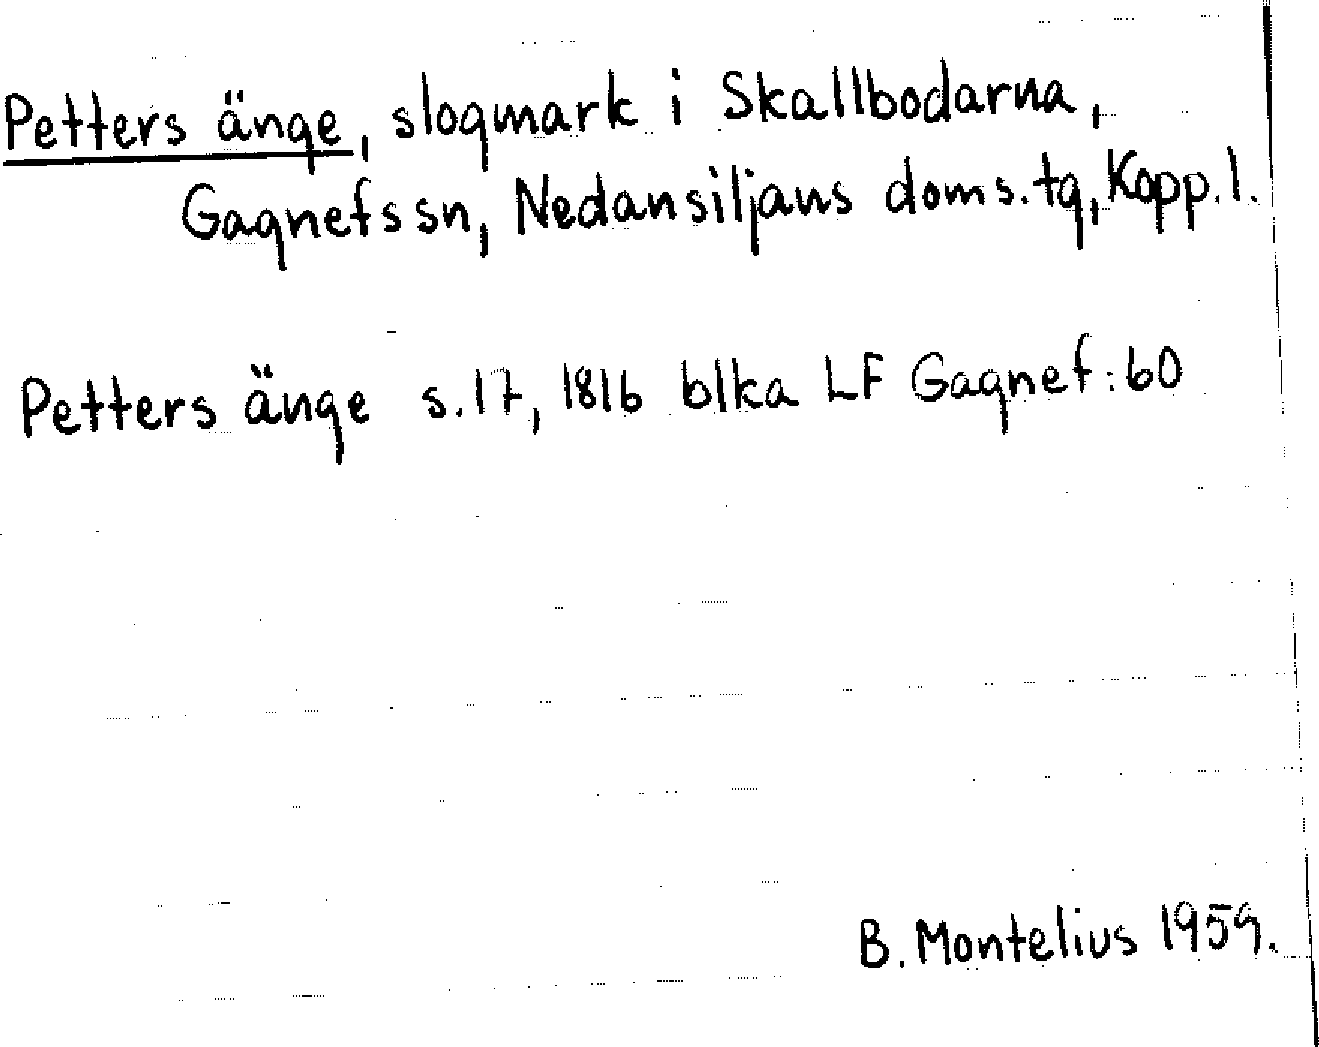 Petters änge, slogmark i Skallbodarna,
Gagnefs sn, Nedansiljans doms.tg, Kopp.l.
Petters änge s.17, 1816 blka LF Gagnef:60
B. Montelius 1959.